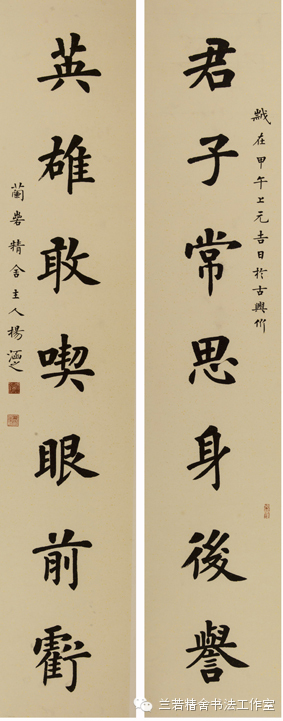 歲在甲午上元吉日於古興
君子常思身後譽
英雄敢喫眼前虧
蘭若精舍主人楊涵之
兰若精舍书法工作室